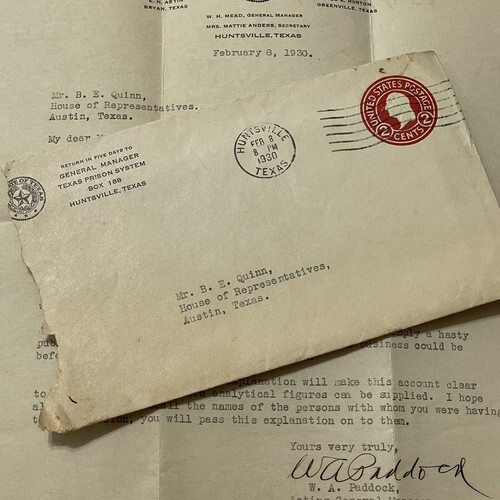 E. N. ASTIN
BRYAN, TEXAS
E. HORTON
GREENVILLE, TEXAS
W. H. MEAD, GENERAL MANAGER
MRS. MATTIE ANDERS, SECRETARY
HUNTSVILLE, TEXAS
February 8, 1930.
Mr. B. E. Quinn,
House of Representatives.
Austin, Texas.
My dear
RETURN IN FIVE DAYS TO
GENERAL MANAGER
TEXAS PRISON SYSTEM
BOX 188
HUNTSVILLE, TEXAS
HUNTSVILLE
FEB 8
8 PM
1930
TEXAS
UNITED STATES POSTAGE
2 CENTS 2
Mr. B. E. Quinn,
House of Representatives,
Austin, Texas.
a hasty
business could be
explanation will make this account clear
to analytical figures can be supplied. I hope
the names of the persons with whom you were having
you will pass this explanation on to them.
Yours very truly,
W A Paddock
W. A. Paddock,
Acting General Manager